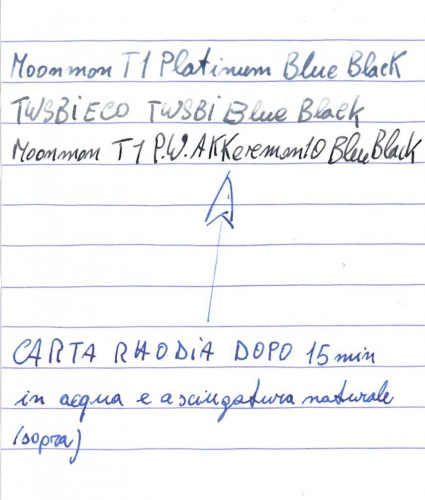 Moonmon T1 Platinum Blue Black
TWSBi ECO TWSBi Blue Black
Moonmon T1 P.W.AKKereman 10 Blue Black
CARTA RHODIA DOPO 15 min
in acqua e asciugatura naturale
(sopra)